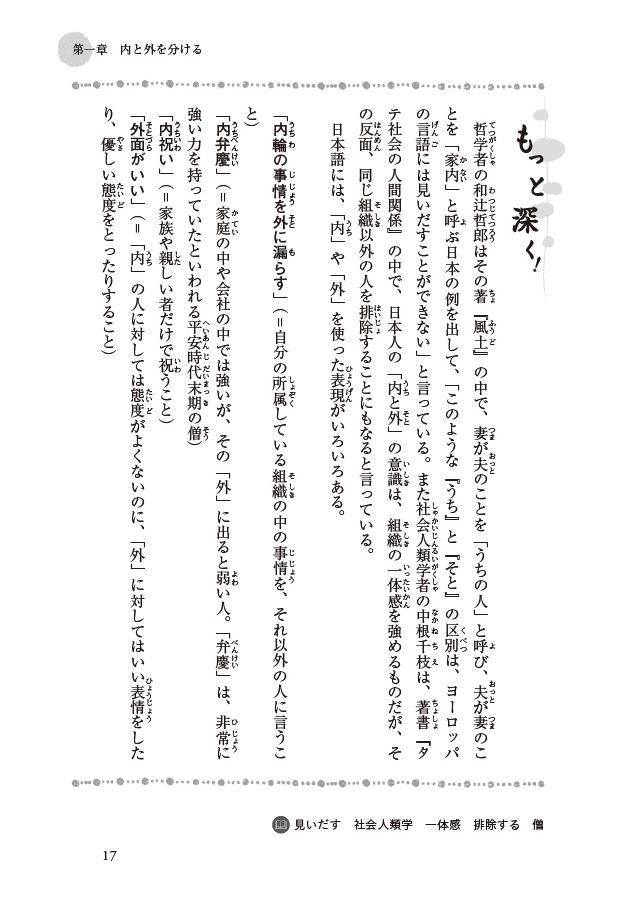 第一章　内と外を分ける
もっと深く！
哲学者の和辻哲郎はその著『風土』の中で、妻が夫のことを「うちの人」と呼び、夫が妻のこ
とを「家内」と呼ぶ日本の例を出して、「このような『うち』と『そと』の区別は、ヨーロッパ
の言語には見いだすことができない」と言っている。また社会人類学者の中根千枝は、著書『タ
テ社会の人間関係』の中で、日本人の「内と外」の意識は、組織の一体感を強めるものだが、そ
の反面、同じ組織以外の人を排除することにもなると言っている。
日本語には、「内」や「外」を使った表現がいろいろある。
「内輪の事情を外に漏らす」（＝自分の所属している組織の中の事情を、それ以外の人に言うこ
と）
「内弁慶」（＝家庭の中や会社の中では強いが、その「外」に出ると弱い人。「弁慶」は、非常に
強い力を持っていたといわれる平安時代末期の僧）
「内祝い」（＝家族や親しい者だけで祝うこと）
「外面がいい」（＝「内」の人に対しては態度がよくないのに、「外」に対してはいい表情をした
り、優しい態度をとったりすること）
見いだす　社会人類学　一体感　排除する　僧
17